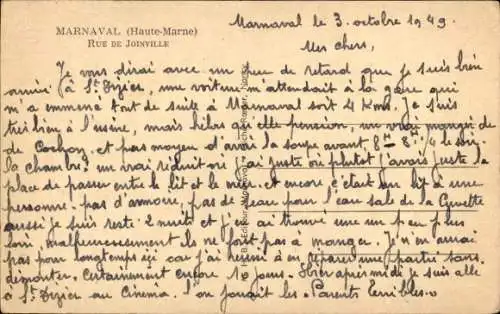 MARNAVAL (Haute-Marne)
RUE DE JOINVILLE
Marnaval le 3 octobre 1949.
Mes chers,
Je vous dirai avec un peu de retard que je suis bien
arrivé à St Dizier, une voiture m'attendait à la gare qui
m'a emmené tout de suite à Marnaval soit 4 Km. Je suis
très bien à l'usine, mais hélas qu'elle pension, un vrai manger de
de Cochon, et pas moyen d'avoir la soupe avant 8H le soir.
la chambre! un vrai réduit où j'ai juste ou plutôt j'avais juste la
place de passer entre le lit et le mur. et encore c'était un lit à une
personne. pas d'armoire, pas de seau pour l'eau sale de la Cuvette
aussi je suis resté 2 nuit et j'en ai trouvé une un peu plus
loin, malheureusement ils ne font pas à manger. Je n'en aurai
pas pour longtemps ici car j'ai réussi à en réparer une partie sans
démonter. Certainement encore 10 jours. Hier après midi je suis allé
à St Dizier au Cinéma. l'on jouait les "Parents terribles".